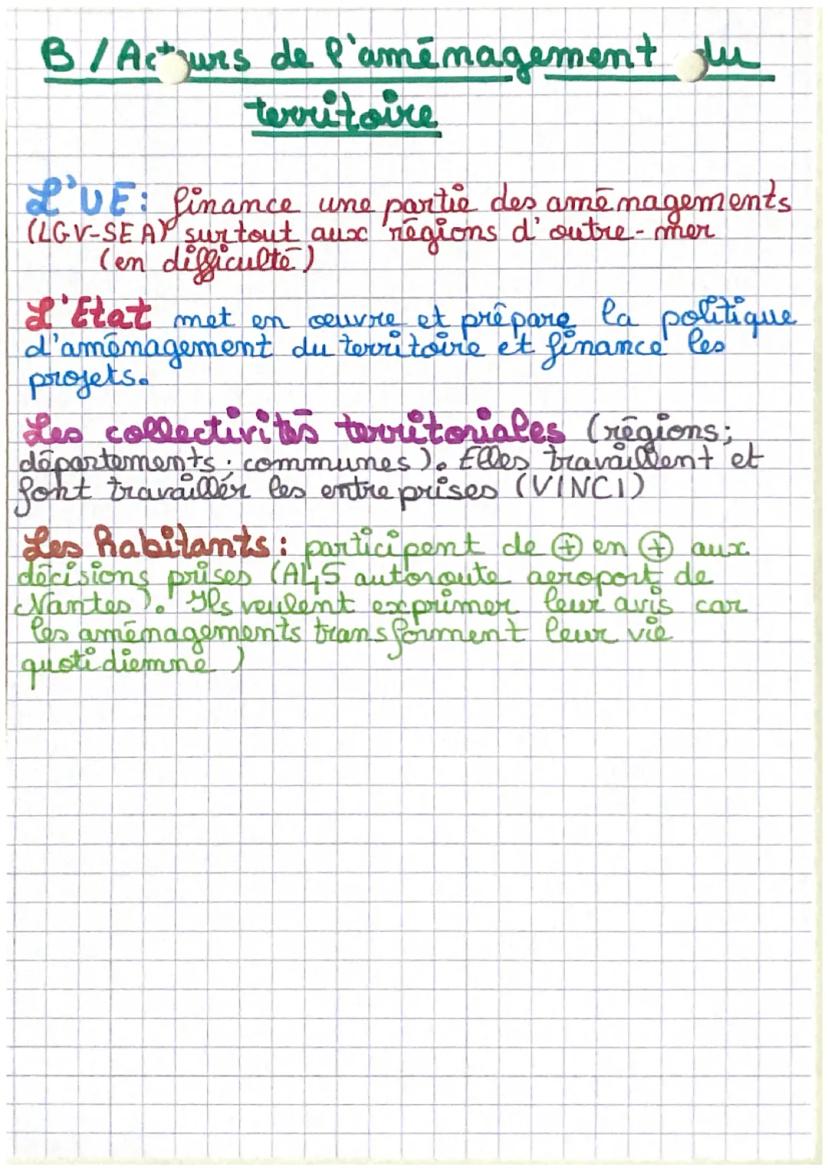 B / Acteurs de l'aménagement du
territoire
L'UE : finance une partie des aménagements
(LGV-SEA) surtout aux régions d'outre-mer
(en difficulté)
L'Etat met en oeuvre et prépare la politique
d'aménagement du territoire et finance les
projets.
Les collectivités territoriales (régions ;
départements ; communes). Elles travaillent et
font travailler les entreprises (VINCI)
Les habitants : participent de ⊕ en ⊕ aux
décisions prises (A45 autoroute aeroport de
Nantes). Ils veulent exprimer leur avis car
les aménagements transforment leur vie
quotidienne )